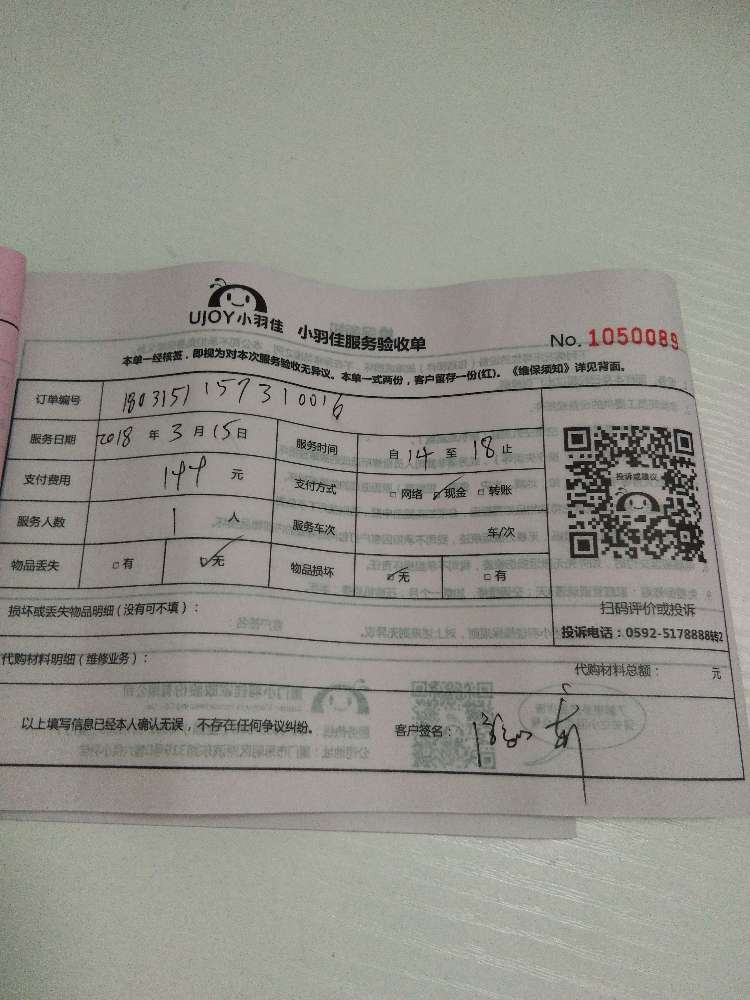 UJOY小羽佳 小羽佳服务验收单 No. 1050089
本单一经核签，即视为对本次服务验收无异议。本单一式两份，客户留存一份(红)。《维保须知》详见背面。
订单编号 1803151157310016
服务日期 2018 年 3 月 15 日 服务时间 自 14 至 18 止
支付费用 144 元 支付方式 □ 网络 ☑ 现金 □ 转账
投诉或建议
服务人数 1 人 服务车次 车/次
物品丢失 □ 有 ☑ 无 物品损坏 ☑ 无 □ 有
损坏或丢失物品明细 (没有可不填)：
扫码评价或投诉
投诉电话：0592-5178888转2
代购材料明细 (维修业务)：
代购材料总额： 元
以上填写信息已经本人确认无误，不存在任何争议纠纷。 客户签名：